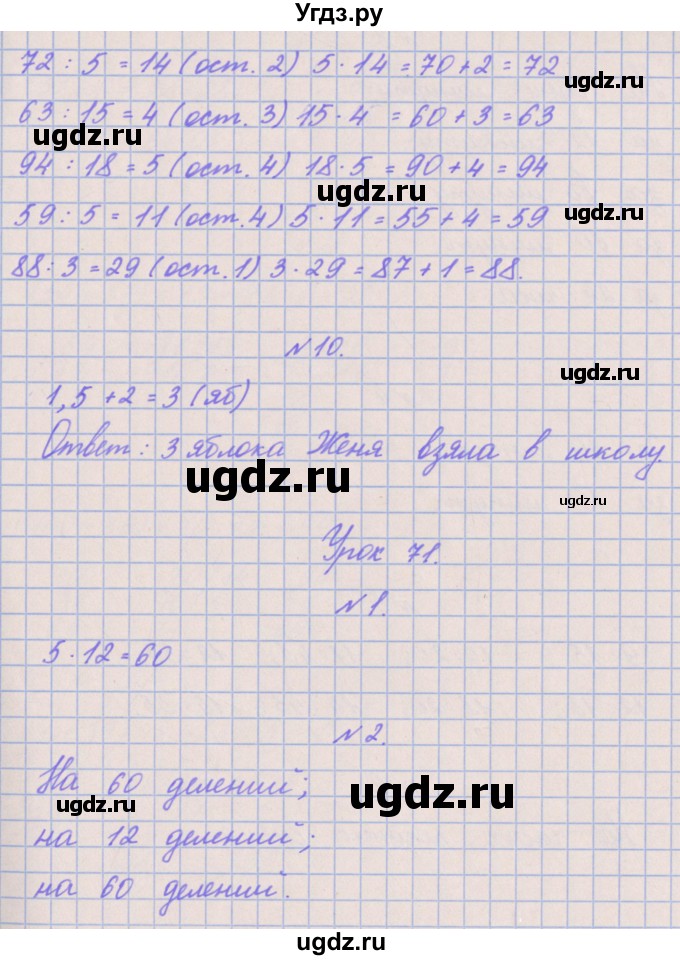 Угдз.ру
72 : 5 = 14 (ост. 2) 5 · 14 = 70 + 2 = 72
ugdz.ru
63 : 15 = 4 (ост. 3) 15 · 4 = 60 + 3 = 63
ugdz.ru
94 : 18 = 5 (ост. 4) 18 · 5 = 90 + 4 = 94
ugdz.ru
59 : 5 = 11 (ост. 4) 5 · 11 = 55 + 4 = 59
ugdz.ru
88 : 3 = 29 (ост. 1) 3 · 29 = 87 + 1 = 88.
№ 10.
ugdz.ru
1,5 + 2 = 3 (яб)
Ответ: 3 яблока Женя взяла в школу.
ugdz.ru
ugdz.ru
Урок 71.
№ 1.
5 · 12 = 60
№ 2.
На 60 делений;
ugdz.ru
ugdz.ru
на 12 делений;
на 60 делений.
ugdz.ru